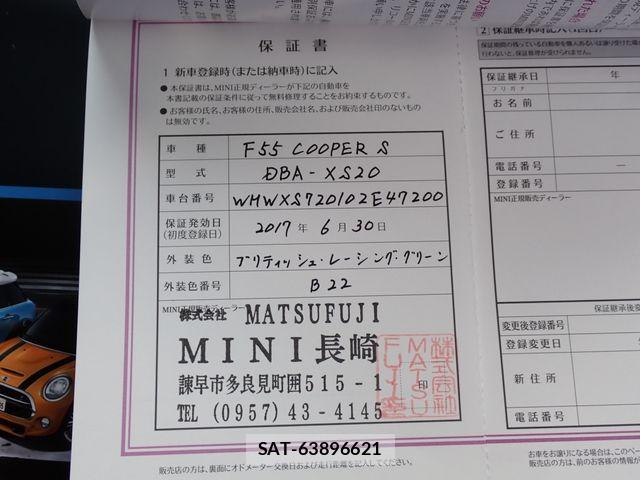 保証書
1 新車登録時(または納車時)に記入
● 本保証書は、MINI正規ディーラーが下記の自動車を
本書記載の保証条件に従って無料修理することをお約束するものです。
● お客様の氏名、お客様の住所、販売会社名、および販売会社印のないもの
は無効です。
車種 F55 COOPER S
型式 DBA-XS20
車台番号 WMWXS720102E47200
保証発効日
(初度登録日)
2017 年 6 月 30 日
外装色 ブリティッシュ・レーシング・グリーン
外装色番号 B22
MINI正規販売ディーラー
株式会社 MATSUFUJI
MINI長崎
諫早市多良見町囲515-1 印
TEL (0957) 43-4145
株式会社
MATSU
販売店の方は、裏面にオドメーター交換日および走行距離を記入してください。
2 保証継承時記入
保証継承日 年
フリガナ
お名前
ご住所
電話番号 ―
登録番号
MINI正規販売ディーラー
保証継承後
変更後登録番号
登録変更日 年
新住所
電話番号
お車をお譲りになる場合は、このペー
販売店の方は、前のお客様の情報が
SAT-63896621